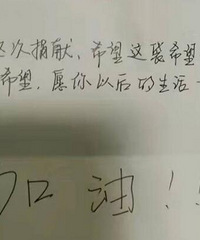 这次捐献、希望这装希望
希望，愿你以后的生活一
加油！！